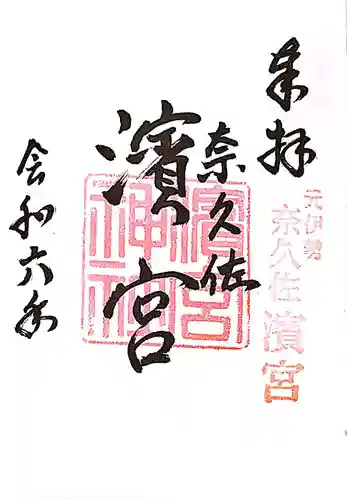 奉拝
元伊勢
奈久佐濱宮
奈久佐
濱宮
濱宮神社
令和六年